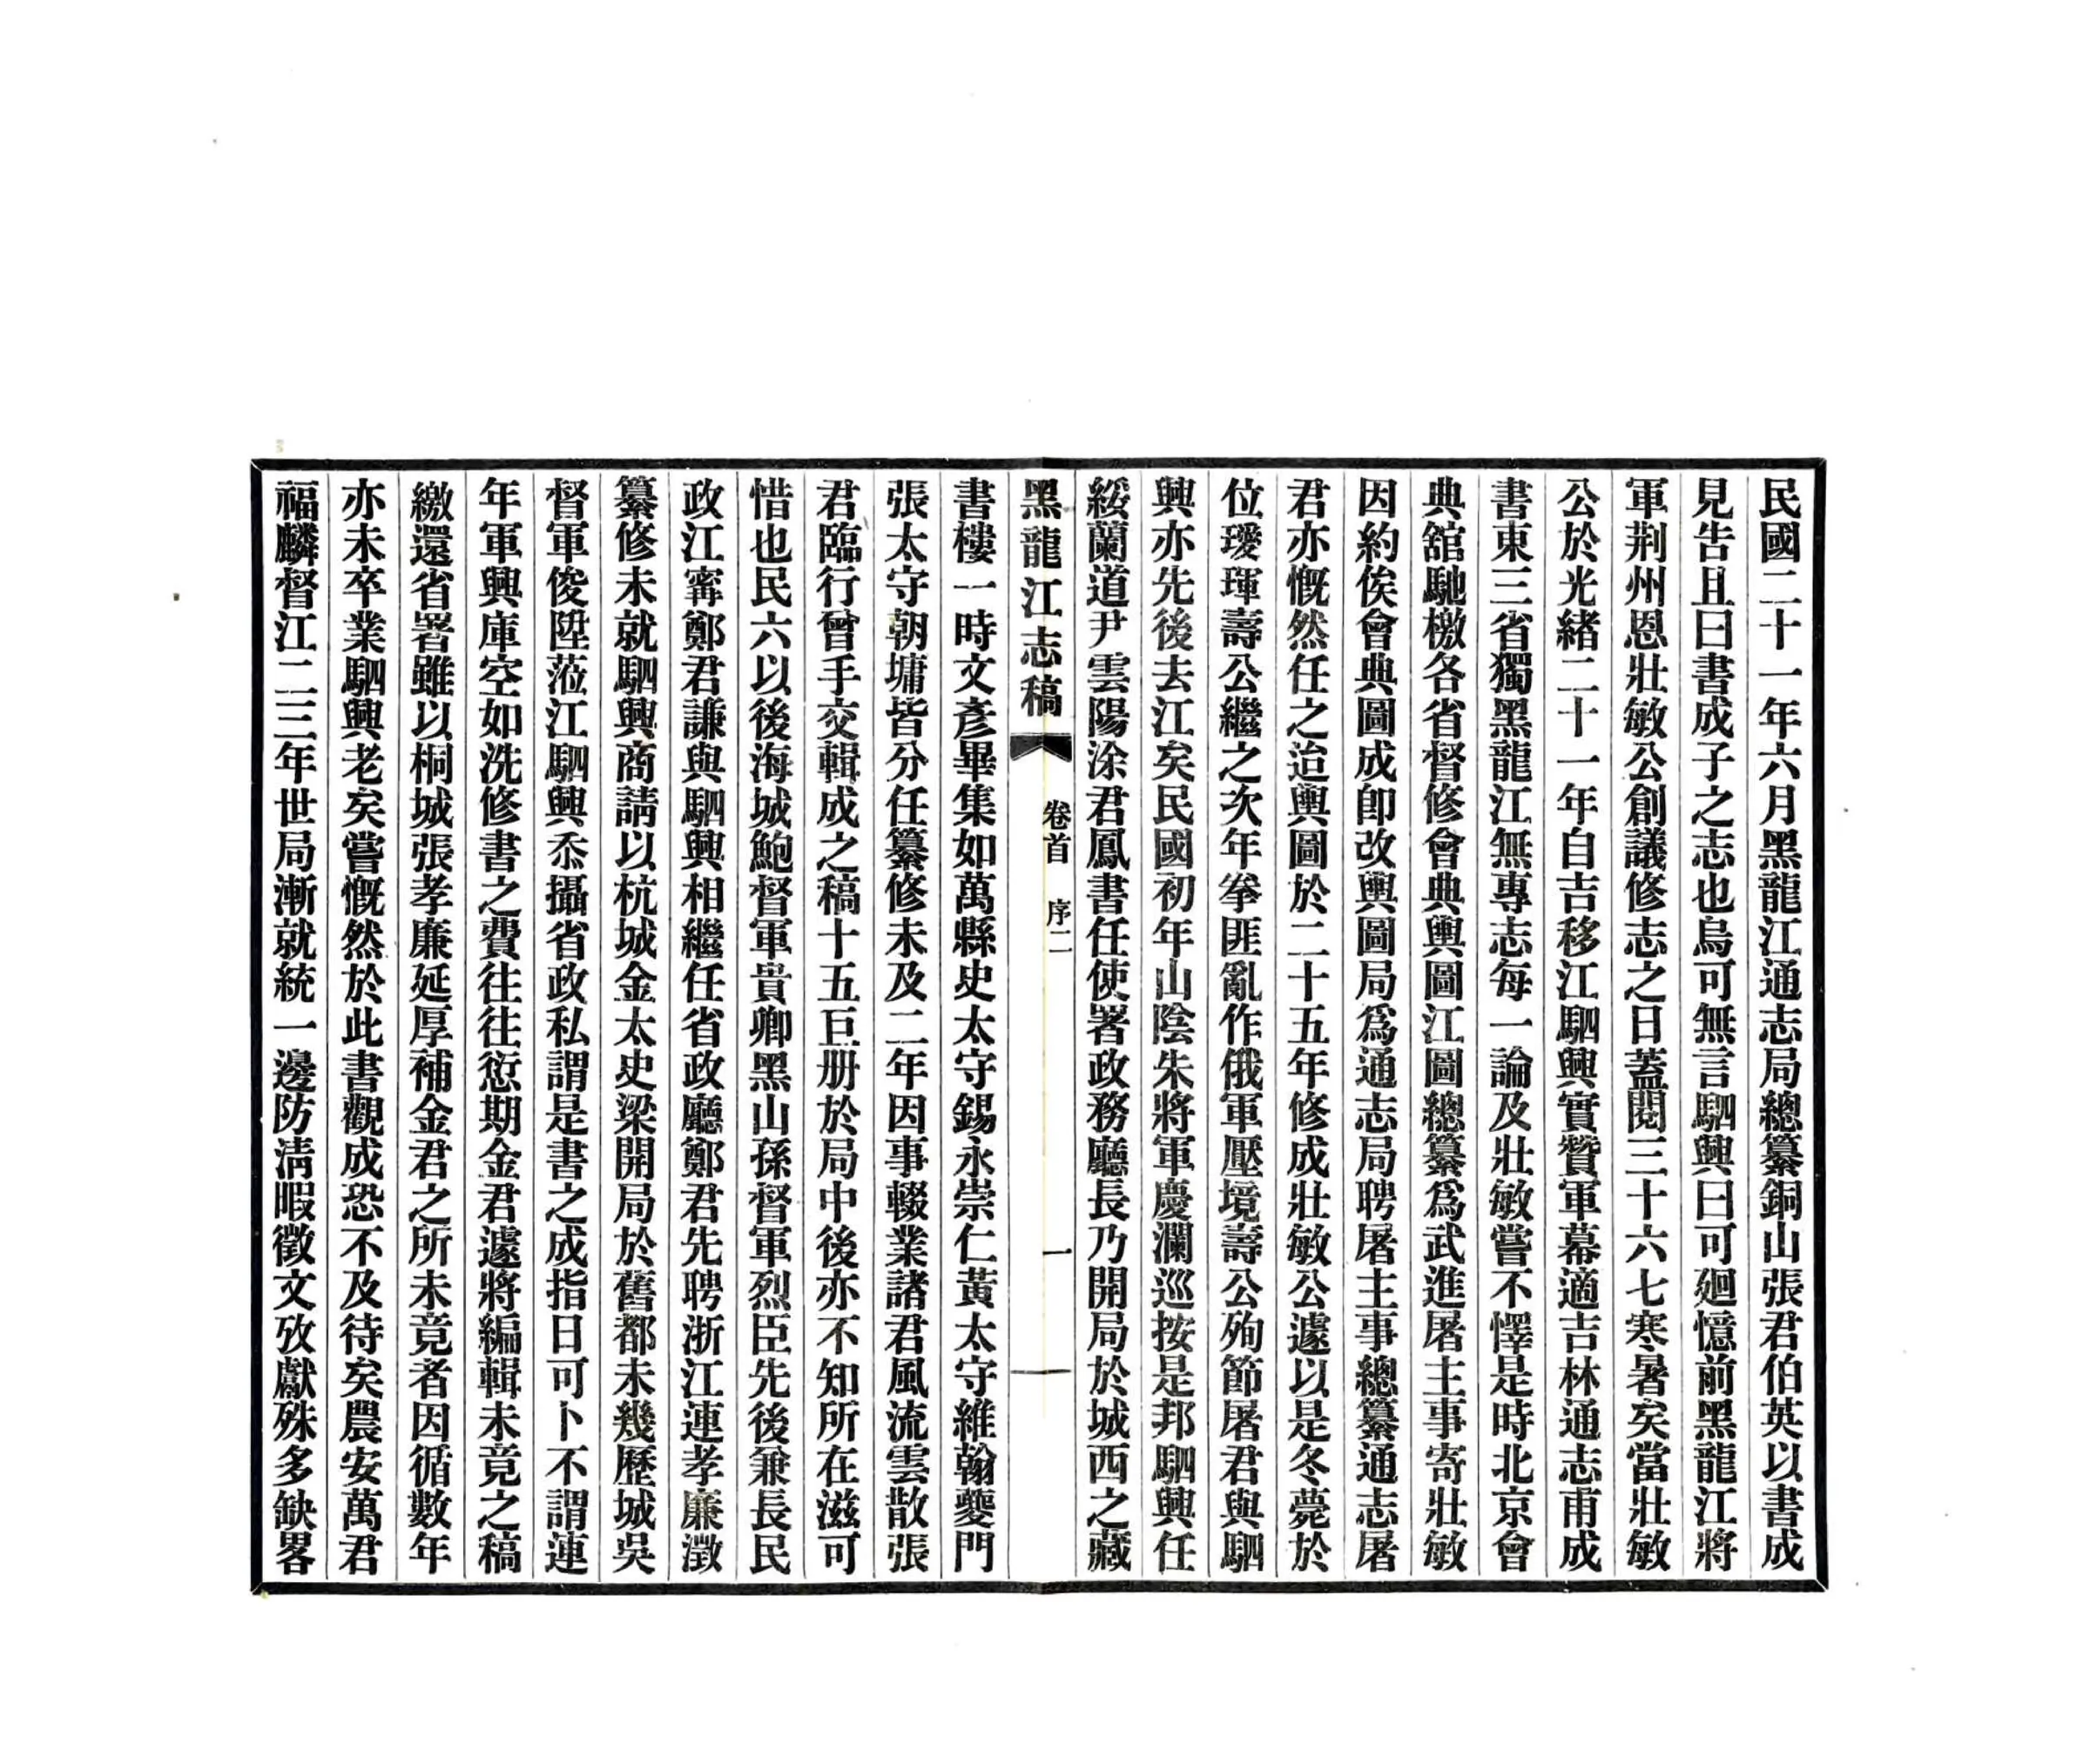 民國二十一年六月黑龍江通志局總纂銅山張君伯英以書成
見告且曰書成子之志也烏可無言駟興曰可廻憶前黑龍江將
軍荆州恩壯敏公創議修志之日蓋閱三十六七寒暑矣當壯敏
公於光緒二十一年自吉移江駟興實贊軍幕適吉林通志甫成
書東三省獨黑龍江無專志每一論及壯敏嘗不懌是時北京會
典舘馳檄各省督修會典輿圖江圖總纂爲武進屠主事寄壯敏
因約俟會典圖成卽改輿圖局爲通志局聘屠主事總纂通志屠
君亦慨然任之迨輿圖於二十五年修成壯敏公遽以是冬薨於
位璦琿壽公繼之次年拳匪亂作俄軍壓境壽公殉節屠君與駟
興亦先後去江矣民國初年山陰朱將軍慶瀾巡按是邦駟興任
綏蘭道尹雲陽涂君鳳書任使署政務廳長乃開局於城西之藏
黑龍江志稿 卷首 序二 一
書樓一時文彥畢集如萬縣史太守錫永崇仁黃太守維翰夔門
張太守朝墉皆分任纂修未及二年因事輟業諸君風流雲散張
君臨行曾手交輯成之稿十五巨册於局中後亦不知所在滋可
惜也民六以後海城鮑督軍貴卿黑山孫督軍烈臣先後兼長民
政江寗鄭君謙與駟興相繼任省政廳鄭君先聘浙江連孝廉瀓
纂修未就駟興商請以杭城金太史梁開局於舊都未幾歷城吳
督軍俊陞蒞江駟興忝攝省政私謂是書之成指日可卜不謂連
年軍興庫空如洗修書之費往往愆期金君遽將編輯未竟之稿
繳還省署雖以桐城張孝廉延厚補金君之所未竟者因循數年
亦未卒業駟興老矣嘗慨然於此書觀成恐不及待矣農安萬君
福麟督江二三年世局漸就統一邊防淸暇徵文攷獻殊多缺畧